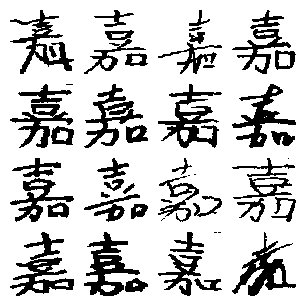 嘉嘉嘉嘉
嘉嘉嘉嘉
嘉嘉嘉嘉
嘉嘉嘉